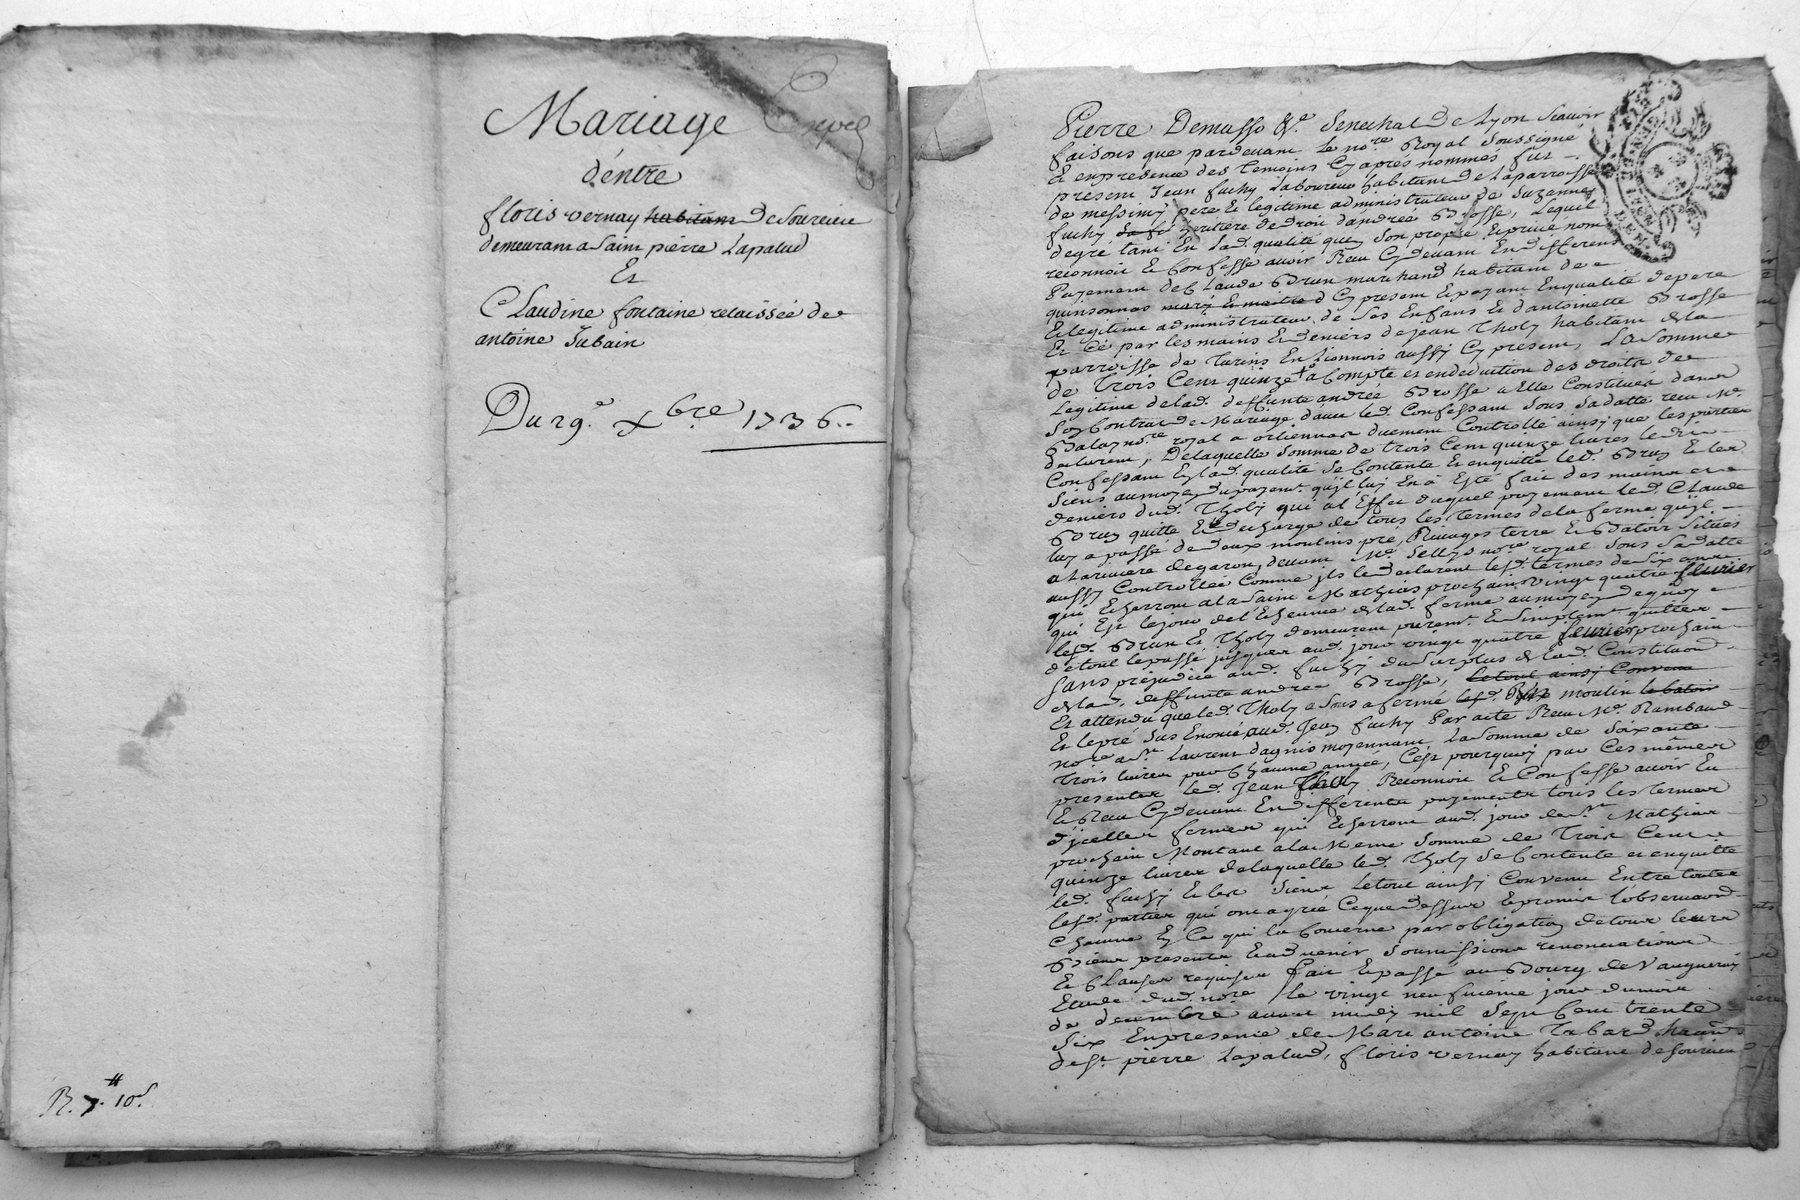 Mariage Expéd
d'entre
floris vernay habitant de Sourcieu
demeurant a Saint pierre Lapalud
Et
Claudine fontaine relaissée de
antoine Subain
Du 29.e xbre 1736.
R. 7.# 10s
Pierre Demasso &.a Senechal de Lyon Scavoir
faisons que pardevant le nore Royal Soussigné
et en presence des temoins Cy apres nommés, fut
present Jean fuchy Laboureur habitant de La parroisse
de messimy pere et legitime administrateur de Suzanne
fuchy heritiere de droit d'andrée Brosse, Lequel
de gré tant En Lad. qualité que En Son propre Et privé nom
reconnoit Et Confesse avoir Reçu Cy devant En differents
Payements de Claude Brun marchand habitant de
quinsonnas mary Et maitre d Cy present Et payant En qualité de pere
Et legitime administrateur de Ses Enfans Et d'antoinette Brosse
Et Ce par les mains Et deniers de Jean Tholy habitant de la
parroisse de Turins En Lionnois aussy Cy present, La Somme
de Trois Cent quinze a Compte et en deduction des droits de
Legitime de lad. deffunte andrée Brosse a Elle Constitués dans
Son Contrat de Mariage d'avec led. Confessant Sous Sa datte reçu Me
Balay nore royal a orlienas duement Controllé ainsy que les parties
declarent, De laquelle Somme de trois Cent quinze livres led.
Confessant En lad. qualité Se Contente Et en quitte led. Brun Et les
Siens au moyen du payemt. qu'il luy En a Esté fait des mains et
deniers dud. Tholy qui a l'Effet duquel payement led. Claude
Brun quitte Et decharge de tous les termes de la ferme qu'il
luy a passé de deux moulins pré, Rivages terre Et Batoir Situés
a La riviere de garon, devant Me. nore royal Sous Sa datte
aussy Controllée Comme ils le declarent lesd. termes de Six années
qui Echerront a la Saint Mathias prochain vingt quatre fevrier
qui Est le jour de l'Echeance de lad. ferme au moyen de quoy
lesd. Brun Et Tholy demeurent puremt. Et Simplemt quittes
de tout le passé jusques aud. jour vingt quatre fevrier prochain
Sans préjudice aud. fuchy du Surplus de lad. Constitution
de lad. deffunte andrée Brosse, Le tout ainsy Convenu
Et attendu que led. Tholy a Sous afermé lesd. moulin le batoir
Et le pré Sus Enoncé aud. Jean fuchy Par acte Reçu Me. Rambaud
nore a St. Laurent dagnis moyennant La Somme de Soixante
Trois livres par Chacune année, C'est pourquoy par Ces mêmes
presentes led. Jean Tholy Reconnoit Et Confesse avoir Eu
Et Reçu Cy devant En differents payements tous les termes
d'icelles fermes qui Echerront aud. jour de St. Mathias
prochain Montant a la Meme Somme de Trois Cent
quinze livres de laquelle led. Tholy Se Contente et en quitte
led. fuchy Et les Siens Le tout ainsy Convenu Entre toutes
lesd. parties qui ont agréé Ce que dessus Et promis l'observation
Chacune En Ce qui la Concerne par obligation de tous leurs
Biens presents Et a venir Soumissions renonciations
Et Clauses requises fait Et passé au Bourg de Vaugneray
Etude dud. nore Le vingt neufvieme jour du mois
de decembre avant midy mil Sept Cent trente
Six En presence de Marc antoine Tabard
de St. pierre Lapalud, floris vernay habitant de Sourcieu